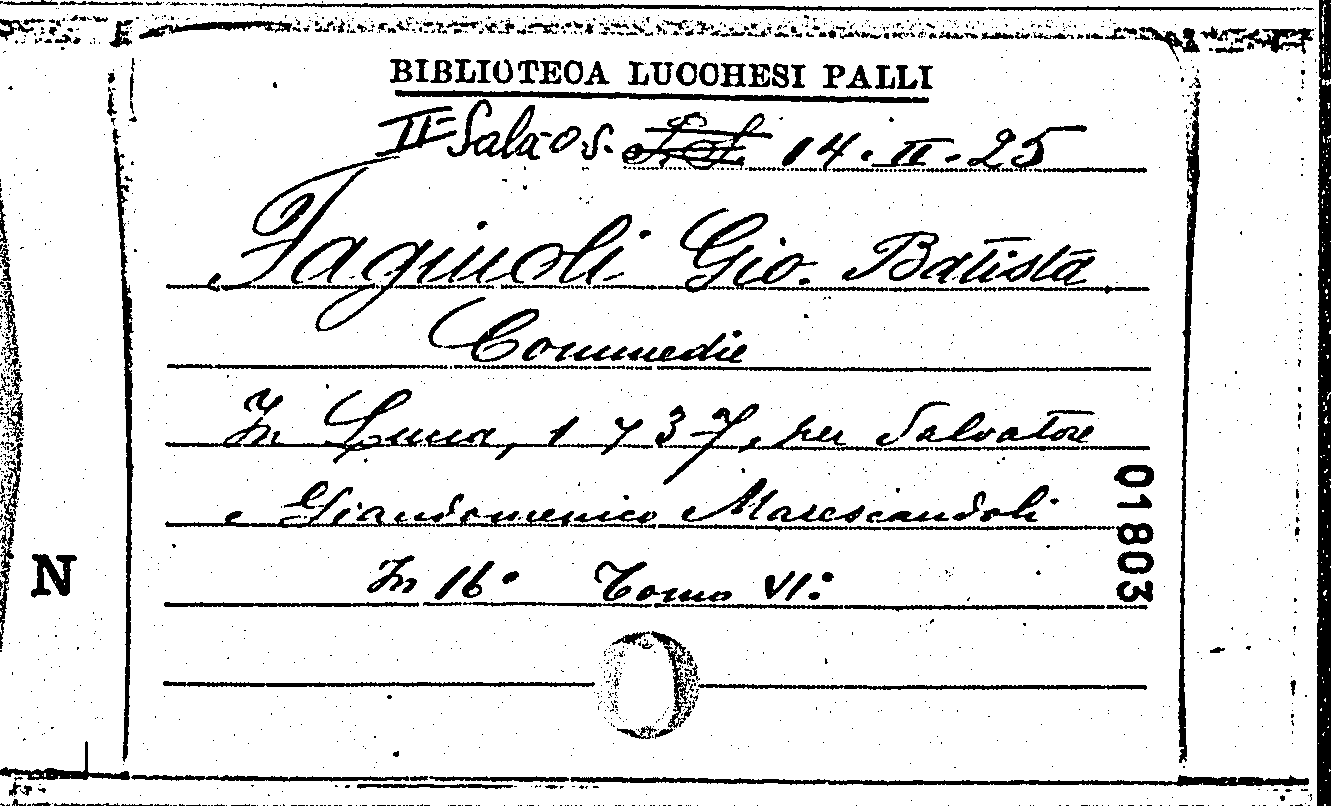 BIBLIOTECA LUCCHESI PALLI
II Sala O.S. 14. II. 25
Fagiuoli Gio. Batista
Commedie
In Lucca, 1737, per Salvatore
e Giandomenico Marescandoli
In 16° Tomo VI:
01803
N